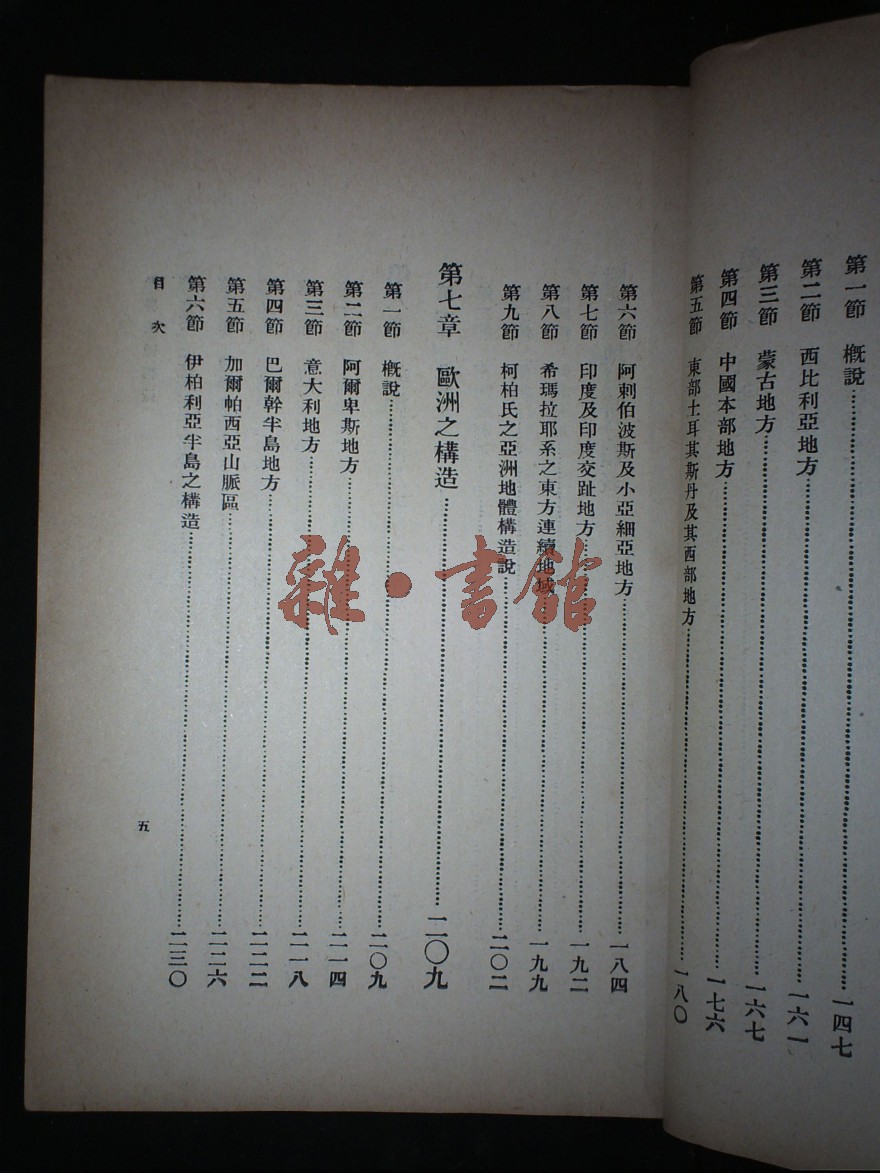 第一節 概說……一四七
第二節 西比利亞地方……一六一
第三節 蒙古地方……一六七
第四節 中國本部地方……一七六
第五節 東部土耳其斯丹及其西部地方……一八〇
第六節 阿剌伯波斯及小亞細亞地方……一八四
第七節 印度及印度交趾地方……一九二
第八節 希瑪拉耶系之東方連續地域……一九九
第九節 柯柏氏之亞洲地體構造說……二〇二
第七章 歐洲之構造……二〇九
第一節 概說……二〇九
第二節 阿爾卑斯地方……二一四
第三節 意大利地方……二一八
第四節 巴爾幹半島地方……二二二
第五節 加爾帕西亞山脈區……二二六
第六節 伊柏利亞半島之構造……二三〇
目次
五
雜·書館